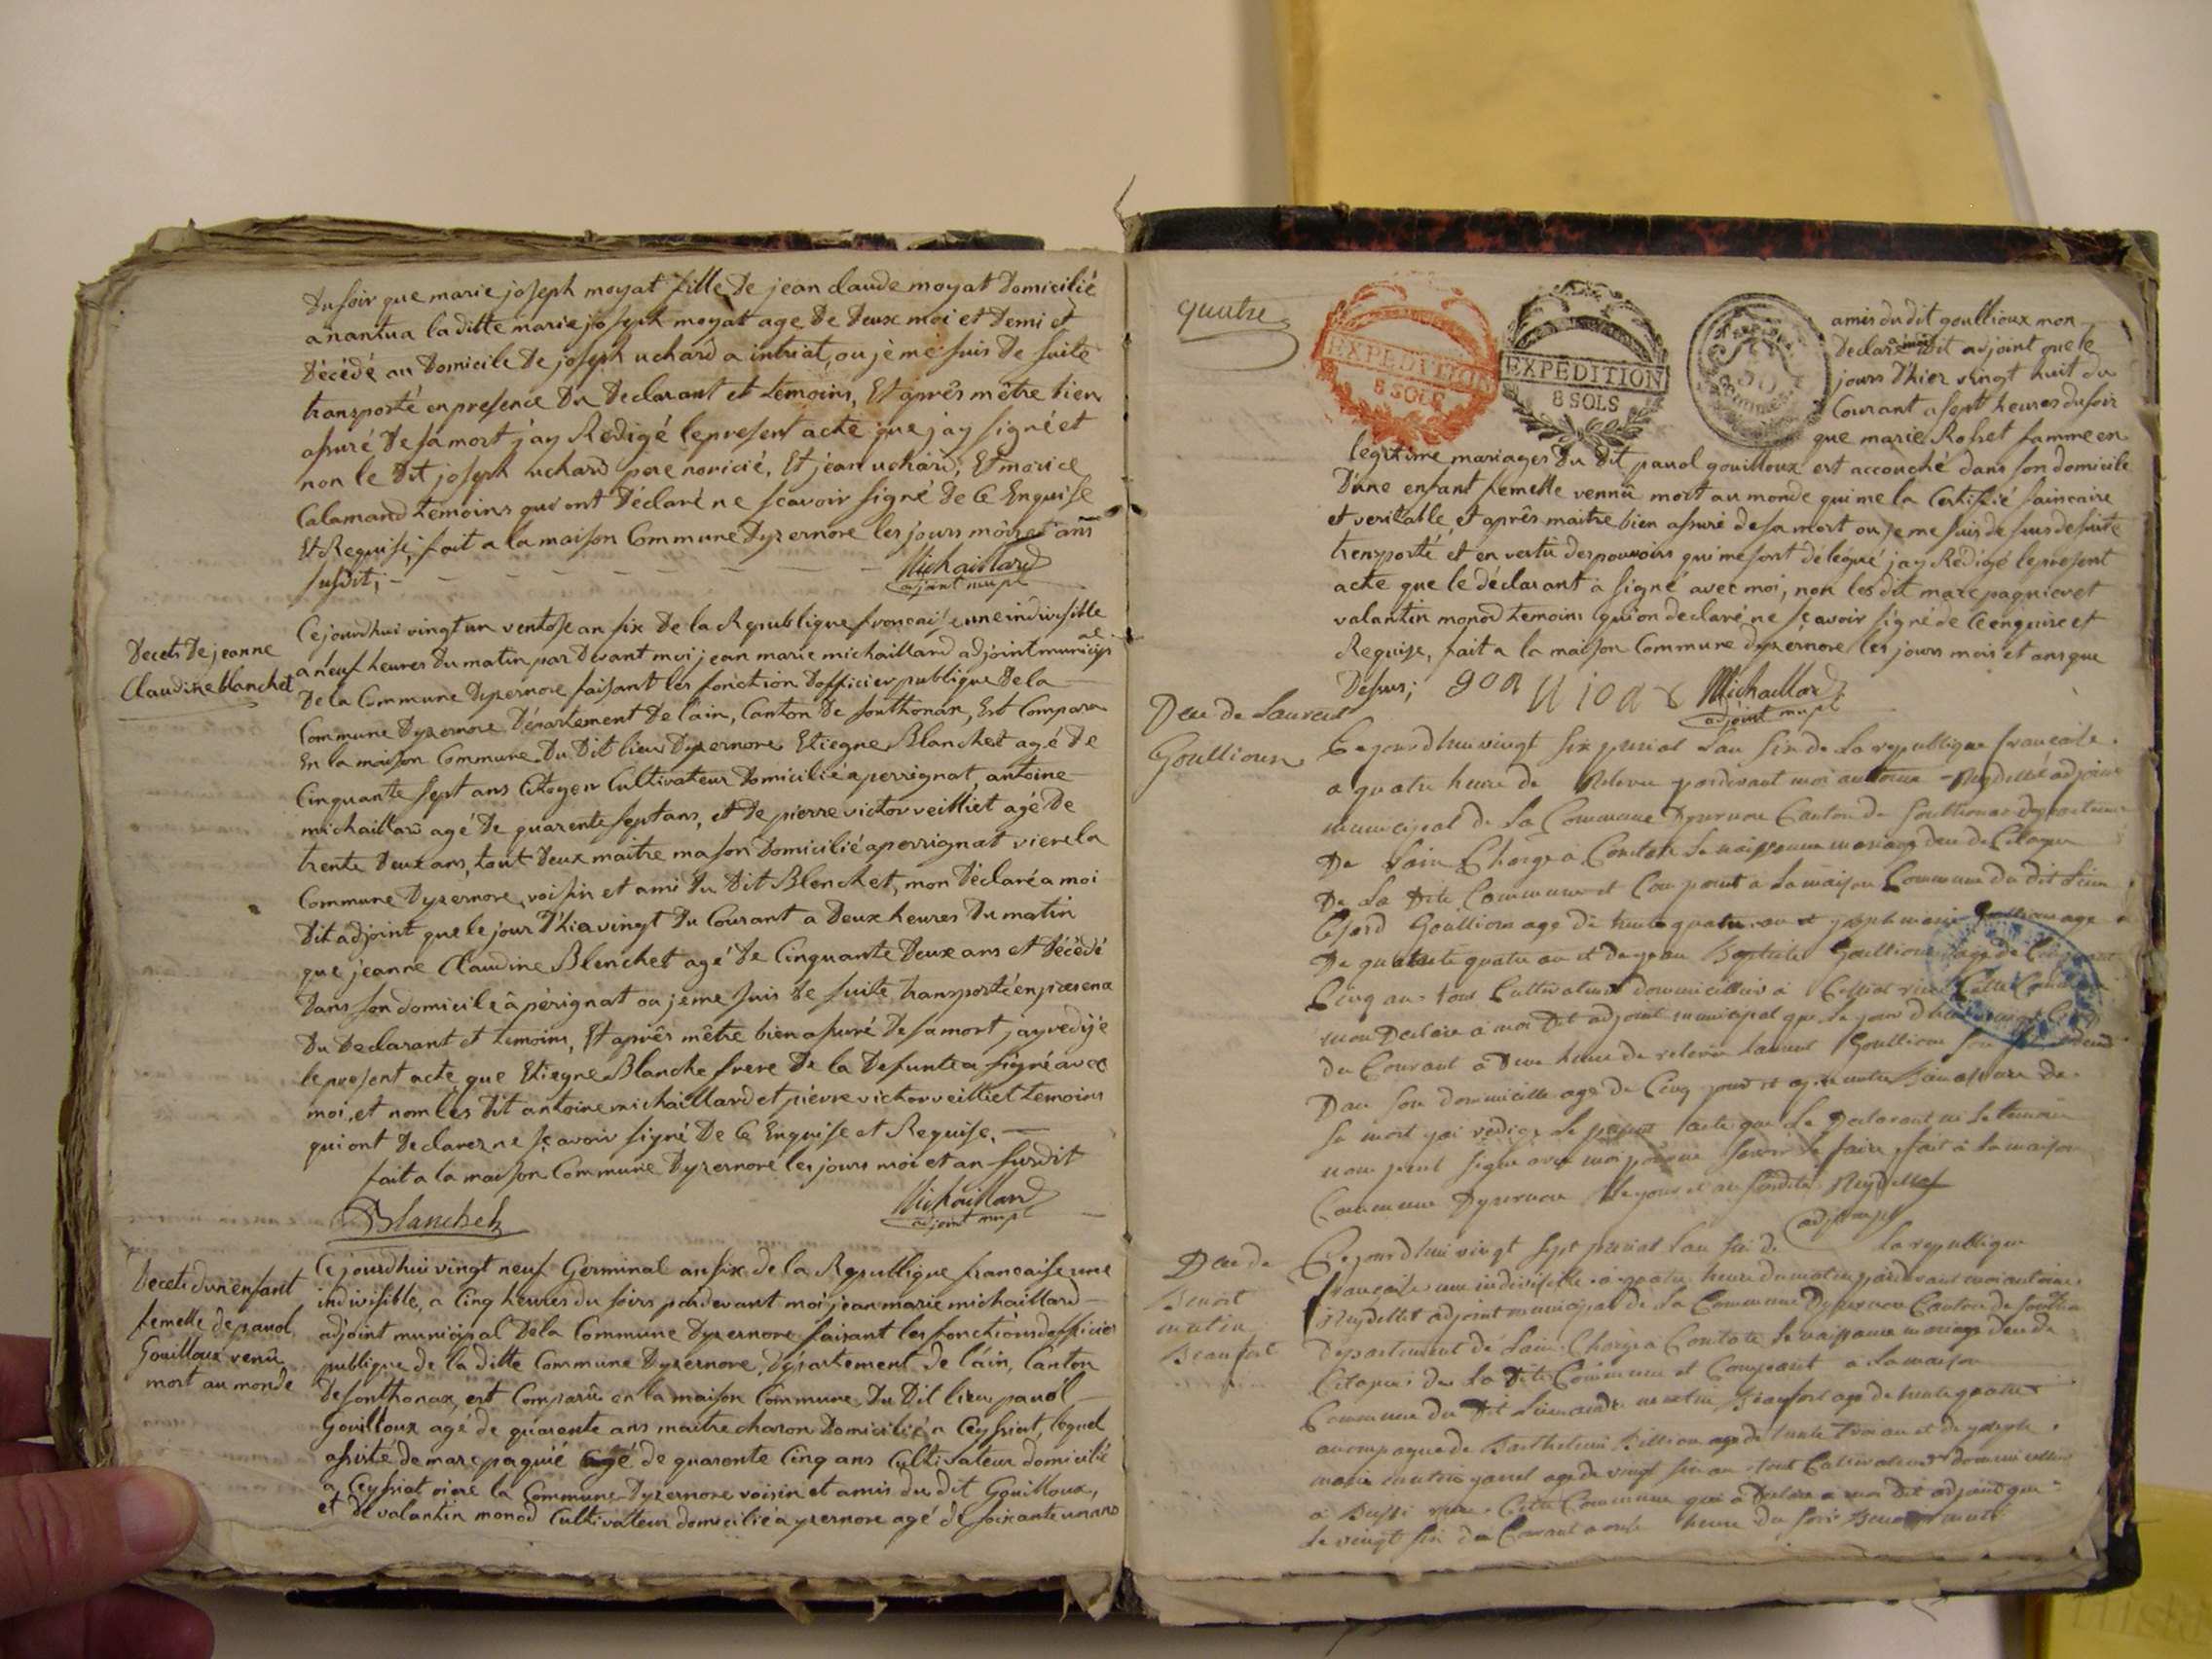 Du soir que marie joseph moyat fille De jean claude moyat Domicilié
a nantua la ditte marie joseph moyat age De Deux moi et Demi et
Décédé au Domicile De joseph uchard a intriat, ou je me suis De suite
transporté en presence Du Declarant et temoins, Et après mêtre bien
assuré De sa mort j'ay Redigé le present acte que j'ay signé et
non le Dit joseph uchard pere noricié, Et jean uchard, Et morice
Calamand temoins qui ont Déclaré ne scavoir signé De Ce Enquise
Et Requise, fait a la maison Commune Dyzernore les jours mois et ans
susdit;
Michaillard
adjoint mupl
Decets De jeanne
Claudine blanchet
Cejourdhui vingt un ventose an six De la Republique francaise une indivisible
a neuf heures Du matin par Devant moi jean marie michaillard adjoint municipal
De la Commune Dyzernore faisant les fonction Dofficier publique De la
Commune Dyzernore Département De l'ain, Canton De Sonthonax, Est Comparu
En la maison Commune Du Dit lieu Dyzernore Etiegne Blanchet agé De
Cinquante sept ans Citoyen Cultivateur Domicilié a perrignat, antoine
michaillard agé De quarente sept ans, et De pierre victor veilliet agé De
trente Deux ans, tout Deux maitre mason Domicilié a perrignat riere la
Commune Dyzernore, voisin et ami Du Dit Blenchet, mon Déclaré a moi
Dit adjoint que le jour D'hier vingt Du Courant a Deux heures Du matin
que jeanne Claudine Blenchet agé De Cinquante Deux ans et Décédé
Dans son domicile à pérignat ou je me suis De suite transporté en presence
Du Declarant et temoins, Et après mêtre bien assuré De sa mort, jay redigé
le present acte que Etiegne Blanche frere De la Defunte a signé avec
moi, et nom les Dit antoine michaillard et pierre victor veilliet temoins
qui ont Declarez ne scavoir signé De Ce Enquise et Requise.
fait a la maison Commune Dyzernore les jours moi et an susdit
Blanchet
Michaillard
adjoint mupl
Decets dun enfant
femelle de pauol
Gouilloux venû
mort au monde
Cejourdhui vingt neuf Germinal an six de la Republique francaise une
indivisible, a Cinq heures du soirs pardevant moi jean marie michaillard
adjoint municipal Dela Commune Dyzernore faisant les fonctions dofficier
publique de la ditte Commune Dyzernore, Département de l'ain, Canton
De sonthonax, est Comparû en la maison Commune Du Dit lieu pauol
Gouilloux agé de quarente ans maitre charon Domicilié a Ceyssiat, lequel
assisté de marc paquié agé de quarente Cinq ans Cultivateur domicilié
a Ceyssiat riere la Commune Dyzernore voisin et amis du dit Gouilloux,
et de valantin monod Cultivateur domicilié a yzernore agé de soixante un ans
quatre
EXPÉDITION
8 SOLS
EXPÉDITION
8 SOLS
amis du dit goullioux mon
Declaré a moi Dit adjoint que le
jours D'hier vingt huit du
Courant a sept heures du soir
que marie Rosset famme en
legitime mariages Du Dit pauol gouilloux est accouché dans son domicile
D'une enfant femelle vennû mort au monde qui me la Certifié saincaire
et veritable, et après maitre bien assuré de sa mort ou je me suis de suis de suite
trensporté et en vertu des pouvoirs qui me sont délégué jay Rédigé le present
acte que le déclarant a signé avec moi, non les dit marc paquier et
valantin monod temoins qui on declaré ne scavoir signé de Ce enquise et
Requise, fait a la maison Commune dyzernore les jours mois et ans que
Dessus;
Michaillard
adjoint mupl
Deu de Laurent
Goullioux
Cejourdhui vingt six prerial l'an six de la republique francaise
a quatre heure de Releve pardevant moi antoine Reydellet adjoint
municipal de la Commune Dyzernore Canton de Sonthonax departement
De l'ain Chargé à Constate le naissance mariage deu de Citoyen
De la Dite Commune et Comparut a la maison Commune du dit lieu
Goullioux age de trente quatre an et joseph marie Goullioux age
De quatre an et de jean Baptiste Goullioux age de
Cinq ans tous Cultivateurs domicillier à
mon Declaré à moi Dit adjoint municipal que le jour d'hier vingt Cinq
du Courant à Deux heure de relevée laurent Goullioux son
Dan son domicille age de Cinq jour et après
sa mort jai redige le present acte que le Declarant ni le temoin
nom peut signe avec moi pour ne savoir le faire, fait à la maison
Commune Dyzernore le jour et an susdits Reydellet
adj mupl
Deu de
Benoit
matin
Beaufort
Cejourdhui vingt sept prerial l'an six de la republique
francaise une indivisible à quatre heure du matin pardevant moi antoine
Reydellet adjoint municipal de la Commune Dyzernore Canton de Sontho
Departement de l'ain Chargé à Constate le naissance mariage deu de
Citoyen de la Dite Commune et Comparut à la maison
Commune du Dit lieu Beaufort age de trente quatre
acompagné de Barthelemi Billion age de trente an et de joseph
marie age de vingt six an tout Cultivateur domicillier
à Bussi riere Cette Commune qui à Declaré a moi Dit adjoint que
le vingt six du Courant a onze heure du soir Benoit